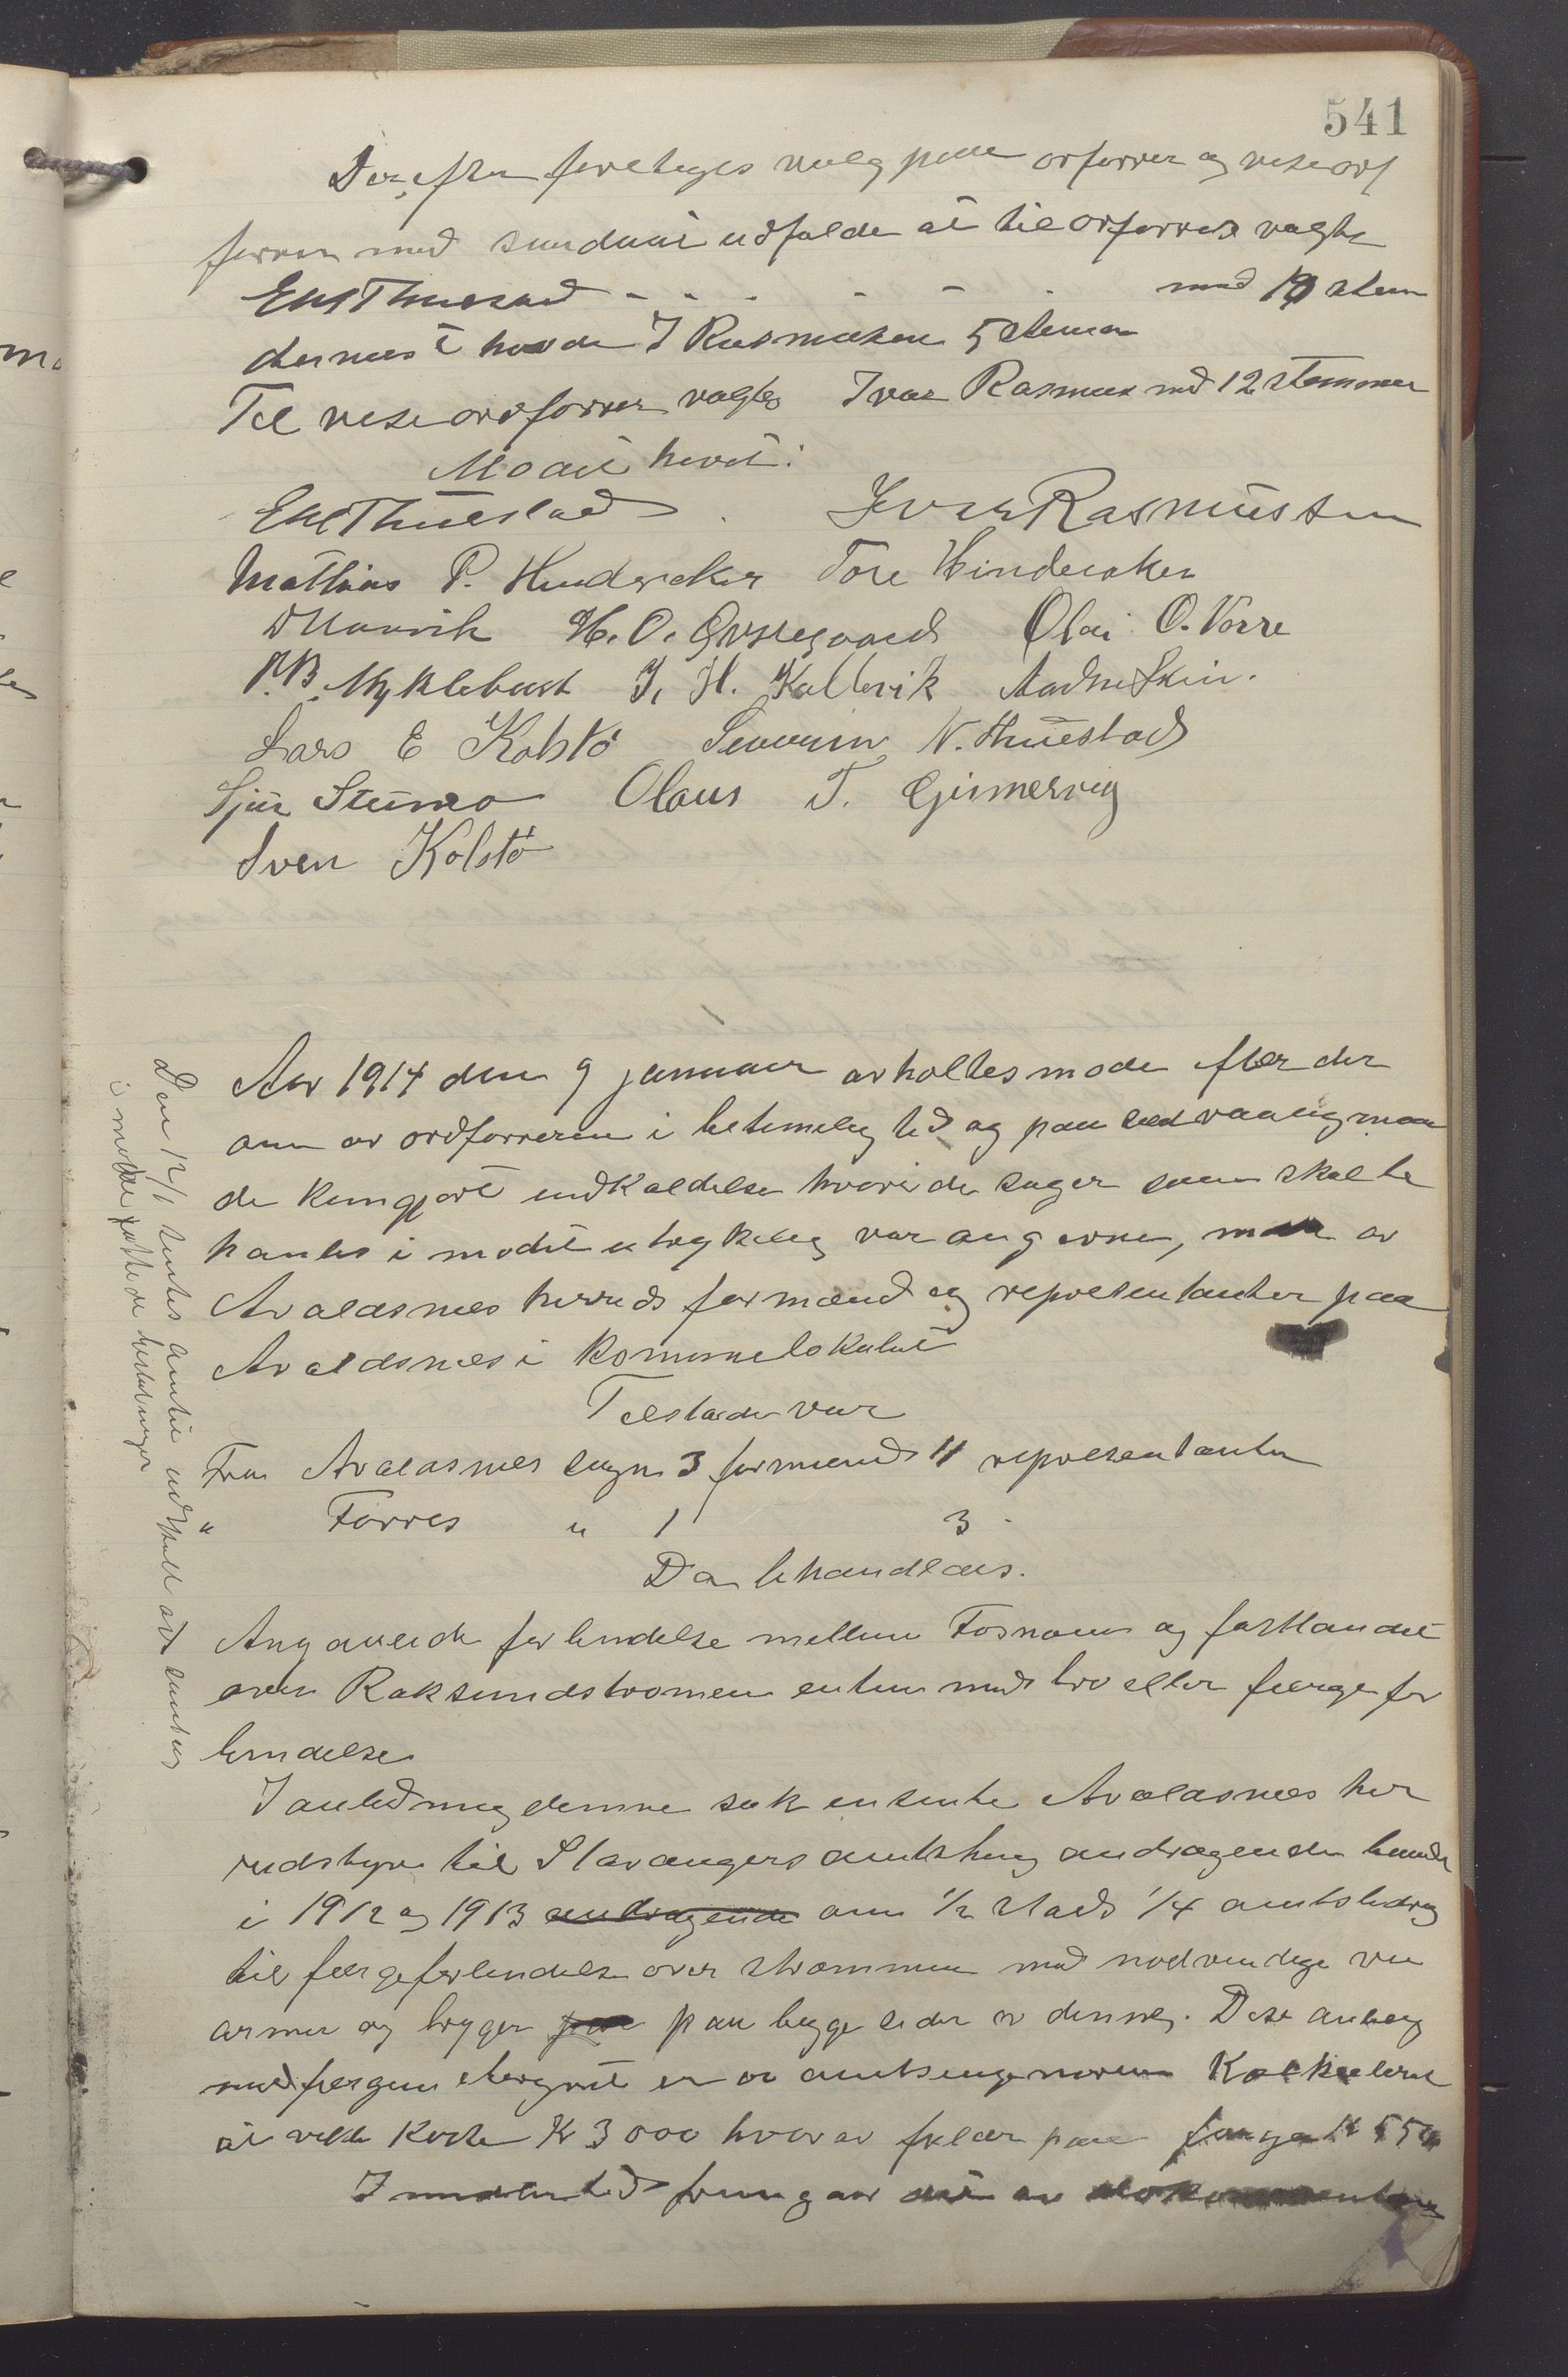 541
Der efter foretoges valg paa orforrer og viseorf
forrer med saadant udfalde at til orforrer valgte
E Thuestad - - - - - - med 10 stem
dernest havde I Rasmusen 5 stemer
Til viseordforrer valgtes Ivar Rasmus med 12 stemmer
Moedt hevet:
E Thuestad Iver Rasmussen
Mathias P. Hinderaker Tore Hinderaker
H. O. Gysregaard Olai O. Vorre
P.B. Myklebust J. H. Kallevik Aadne Skeie.
Lars E Kolstö Severin N. Thuestad
Sjur Stumo Olaus T. Gismervig
Sven Kolstö
Aar 1914 den 9 januar avholtes møde efter der
om av ordforreren i betimelig tid og paa sedvaanlig maa
de kungjort indkaldelse hvori de sager som skal be
hanles i mødet utrykelig var angivne, av
Avaldsnes herreds formænd og representanter paa
Avaldsnes i Komunelokalet
Telstæde var
Fra Avaldsnes sogn 3 formænd 11 representanter
" Torres " 1 3 -
Da behandledes.
Angaaende forbindelse mellem Fosnaen og fastlandet
over Røksundstrømen enten med bro eller færge for
bindelse
I anledning denne sak ensente Avaldsnes her
redstyre til Stavangers amtsting andragender baade
i 1912 og 1913 andragende om 1/2 stads 1/4 amtsbidrag
til færgeforbindelse over strømmen med nødvendige vei
armer og brygger paa paa begge sider av denne. Dise anlæg
med færgen iberegnet er av amtsingeniøren Kalkuleret
at ville koste Kr 3000 hvorav falder paa færgen Kr 550
Imidlertid fremgaar det av dokomenterne
Den 12/1 sendes amtet udskrift av
i møtte fattede beslutninger